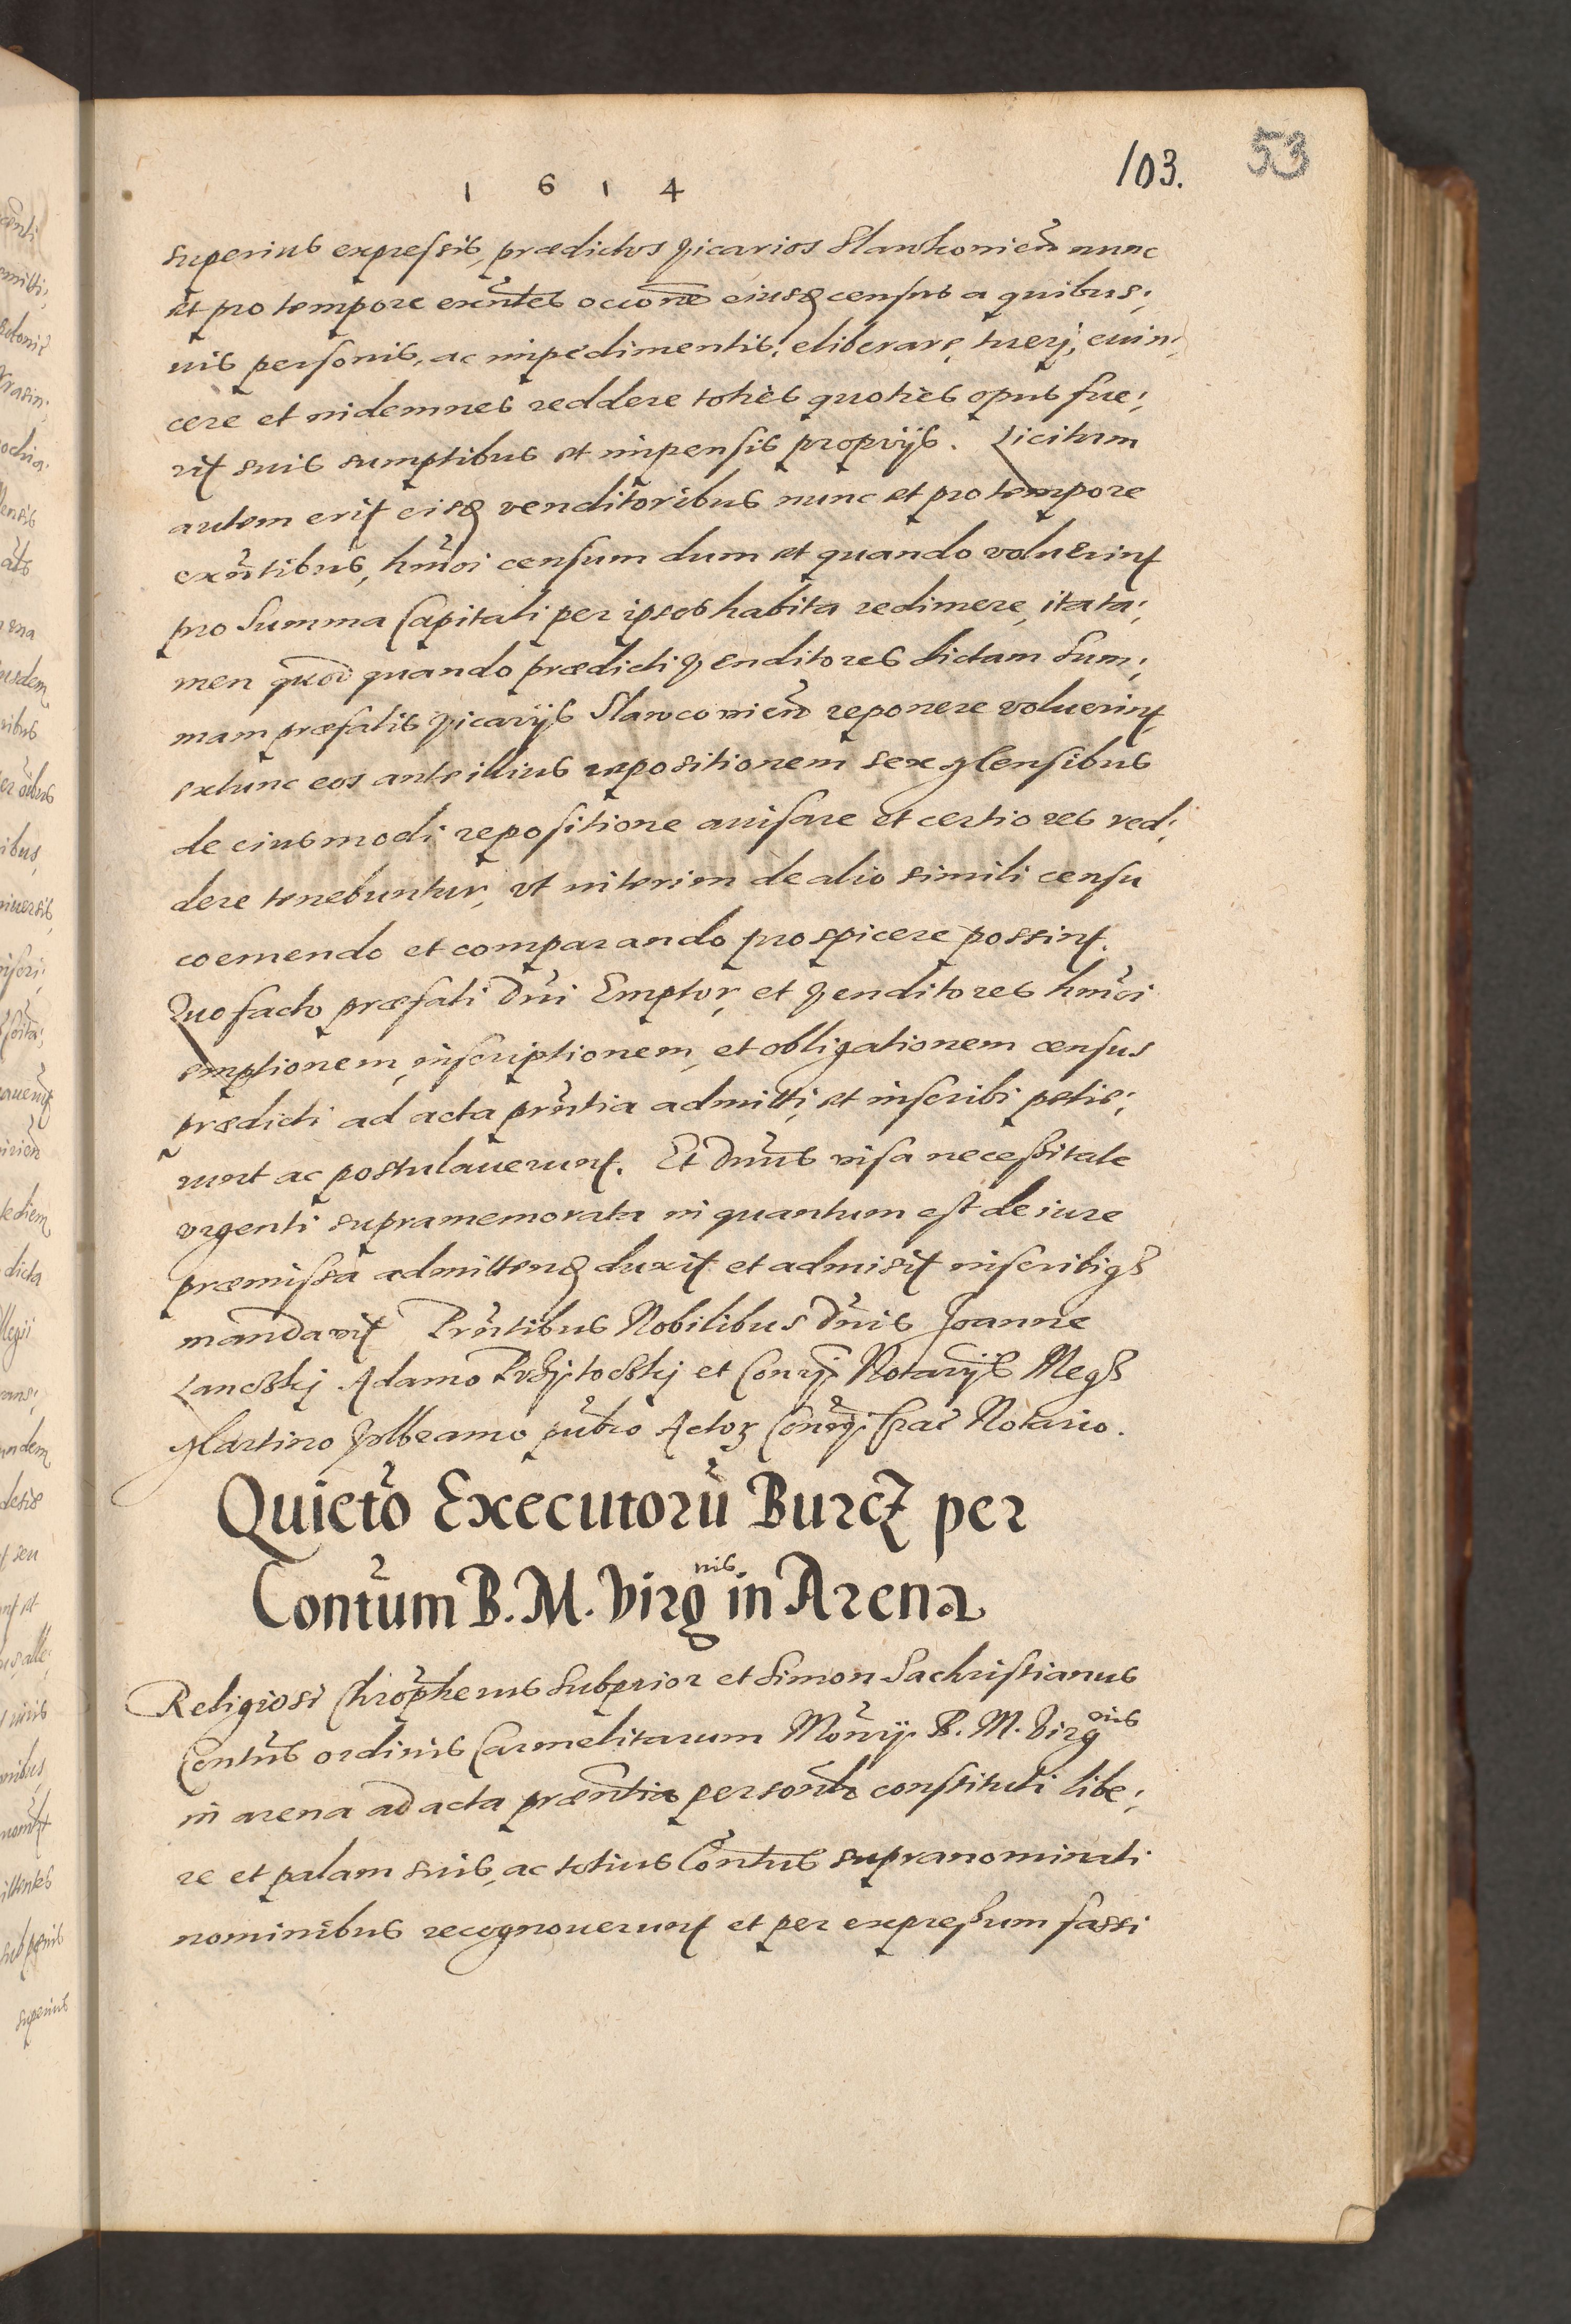 1 6 1 4
103.
53
superius expressis, praedictos Vicarios Slawkovien̄ nunc
et pro tempore exn̄tes occōne eiusd census a quibus;
uis personis, ac impedimentis, eliberare, tuerj, euin;
cere et indemnes reddere toties quoties opus fue;
rit suis sumptibus et impensis proprijs. Licitum
autem erit eisd venditoribus nunc et pro tempore
exn̄tibus, hm̄oi censum dum et quando voluerint
pro Summa Capitali per ipsos habita redimere, ita ta;
men quod quando praedicti Venditores dictam Sum;
mam praefatis Vicarijs Slawcovien̄ reponere voluerint,
extunc eos ante illius repositionem sex Mensibus
de eiusmodi repositione auisare et certiores red;
dere tenebuntur, vt interim de alio simili censu
coemendo et comparando prospicere possint.
Quo facto praefati Dn̄i Emptor, et Venditores hm̄oi
emptionem, inscriptionem, et obligationem census
praedicti ad acta prn̄tia admitti, et inscribi petie;
runt ac postulauerunt. Et Dn̄us visa necessitate
vrgenti supramemorata in quantum est de iure
praemissa admittend duxit et admisit inscribiq3
mandavit Prn̄tibus Nobilibus Dn̄is Joanne
Lanckkj Adamo et Con̄rj Notarijs Meq3
Martino pub̄co Actor Con̄rj Crac̄ Notario.
Quieto͂ Executorū Burcz per
Contūum B. M. Virg nis in Arena
Religiosi Chrōpherus Subprior et Simon Sachristianus
Contūs ordinis Carmelitarum Mon̄rij B. M. Virg nis
in arena ad acta praen̄tia personlr constituti libe;
re et palam suis, ac totius Contūs supranominati
nominibus recognouerunt et per expressum fassi